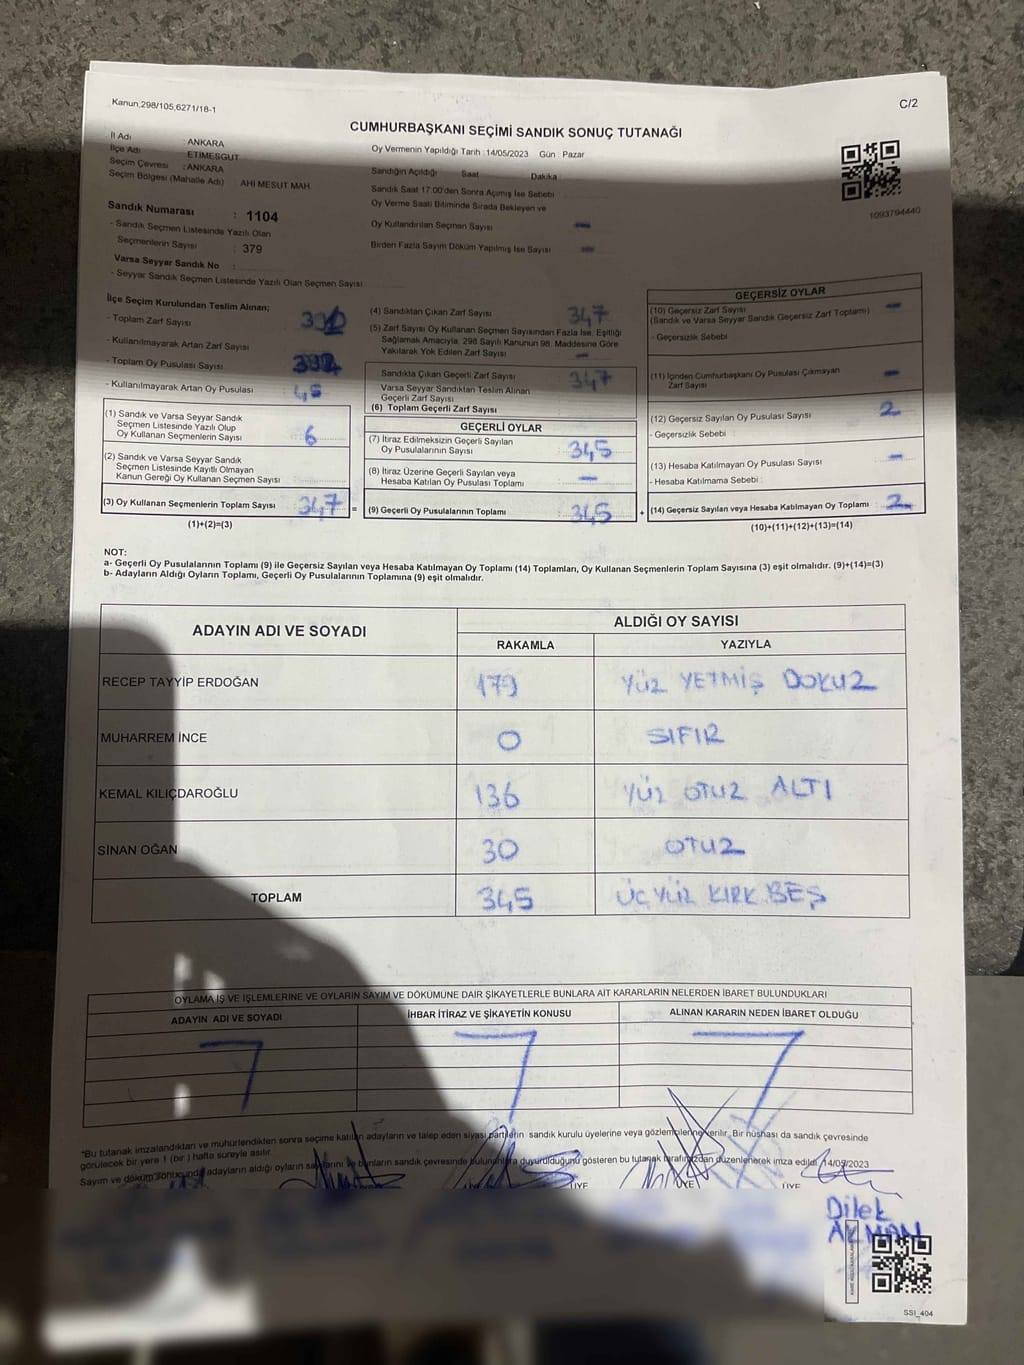 Kanun,298/105,6271/18-1
C/2
CUMHURBAŞKANI SEÇİMİ SANDIK SONUÇ TUTANAĞI
İl Adı : ANKARA
İlçe Adı : ETİMESGUT
Seçim Çevresi : ANKARA
Seçim Bölgesi (Mahalle Adı) AHİ MESUT MAH
Oy Vermenin Yapıldığı Tarih :14/05/2023 Gün : Pazar
Sandığın Açıldığı Saat Dakika
Sandık Saat 17:00'den Sonra Açımış İse Sebebi
Oy Verme Saati Bitiminde Sırada Bekleyen ve
Oy Kullandırılan Seçmen Sayısı –
Birden Fazla Sayım Döküm Yapılmış İse Sayısı –
1093794440
Sandık Numarası : 1104
- Sandık Seçmen Listesinde Yazılı Olan
Seçmenlerin Sayısı : 379
Varsa Seyyar Sandık No :
- Seyyar Sandık Seçmen Listesinde Yazılı Olan Seçmen Sayısı
İlçe Seçim Kurulundan Teslim Alınan;
- Toplam Zarf Sayısı
- Kullanılmayarak Artan Zarf Sayısı
- Toplam Oy Pusulası Sayısı
- Kullanılmayarak Artan Oy Pusulası 45
(1) Sandık ve Varsa Seyyar Sandık
Seçmen Listesinde Yazılı Olup
Oy Kullanan Seçmenlerin Sayısı 6
(2) Sandık ve Varsa Seyyar Sandık
Seçmen Listesinde Kayıtlı Olmayan
Kanun Gereği Oy Kullanan Seçmen Sayısı
(3) Oy Kullanan Seçmenlerin Toplam Sayısı 347 =
(1)+(2)=(3)
(4) Sandıktan Çıkan Zarf Sayısı 347
(5) Zarf Sayısı Oy Kullanan Seçmen Sayısından Fazla İse, Eşitliği
Sağlamak Amacıyla, 298 Sayılı Kanunun 98. Maddesine Göre
Yakılarak Yok Edilen Zarf Sayısı –
Sandıkta Çıkan Geçerli Zarf Sayısı 347
Varsa Seyyar Sandıktan Teslim Alınan
Geçerli Zarf Sayısı
(6) Toplam Geçerli Zarf Sayısı
GEÇERLİ OYLAR
(7) İtiraz Edilmeksizin Geçerli Sayılan
Oy Pusulalarının Sayısı 345
(8) İtiraz Üzerine Geçerli Sayılan veya
Hesaba Katılan Oy Pusulası Toplamı –
(9) Geçerli Oy Pusulalarının Toplamı 345 +
GEÇERSİZ OYLAR
(10) Geçersiz Zarf Sayısı –
(Sandık ve Varsa Seyyar Sandık Geçersiz Zarf Toplamı)
- Geçersizlik Sebebi
(11) İçinden Cumhurbaşkanı Oy Pusulası Çıkmayan
Zarf Sayısı –
(12) Geçersiz Sayılan Oy Pusulası Sayısı 2
- Geçersizlik Sebebi :
(13) Hesaba Katılmayan Oy Pusulası Sayısı –
- Hesaba Katılmama Sebebi :
(14) Geçersiz Sayılan veya Hesaba Katılmayan Oy Toplamı 2
(10)+(11)+(12)+(13)=(14)
NOT:
a- Geçerli Oy Pusulalarının Toplamı (9) ile Geçersiz Sayılan veya Hesaba Katılmayan Oy Toplamı (14) Toplamları, Oy Kullanan Seçmenlerin Toplam Sayısına (3) eşit olmalıdır. (9)+(14)=(3)
b- Adayların Aldığı Oyların Toplamı, Geçerli Oy Pusulalarının Toplamına (9) eşit olmalıdır.
ADAYIN ADI VE SOYADI
ALDIĞI OY SAYISI
RAKAMLA YAZIYLA
RECEP TAYYİP ERDOĞAN 179 YÜZ YETMİŞ DOKUZ
MUHARREM İNCE 0 SIFIR
KEMAL KILIÇDAROĞLU 136 YÜZ OTUZ ALTI
SİNAN OĞAN 30 OTUZ
TOPLAM 345 ÜÇ YÜZ KIRK BEŞ
OYLAMA İŞ VE İŞLEMLERİNE VE OYLARIN SAYIM VE DÖKÜMÜNE DAİR ŞİKAYETLERLE BUNLARA AİT KARARLARIN NELERDEN İBARET BULUNDUKLARI
ADAYIN ADI VE SOYADI İHBAR İTİRAZ VE ŞİKAYETİN KONUSU ALINAN KARARIN NEDEN İBARET OLDUĞU
"Bu tutanak imzalandıktan ve mühürlendikten sonra seçime katılan adayların ve talep eden siyasi partilerin sandık kurulu üyelerine veya gözlemcilerine verilir. Bir nüshası da sandık çevresinde
görülecek bir yere 1 (bir) hafta süreyle asılır.
Sayım ve döküm sonucunda adayların aldığı oyların sayılarını ve bunların sandık çevresinde bulunanlara duyurulduğunu gösteren bu tutanak tarafımızdan düzenlenerek imza edildi 14/05/2023
ÜYE ÜYE ÜYE
Dilek
SSI_404